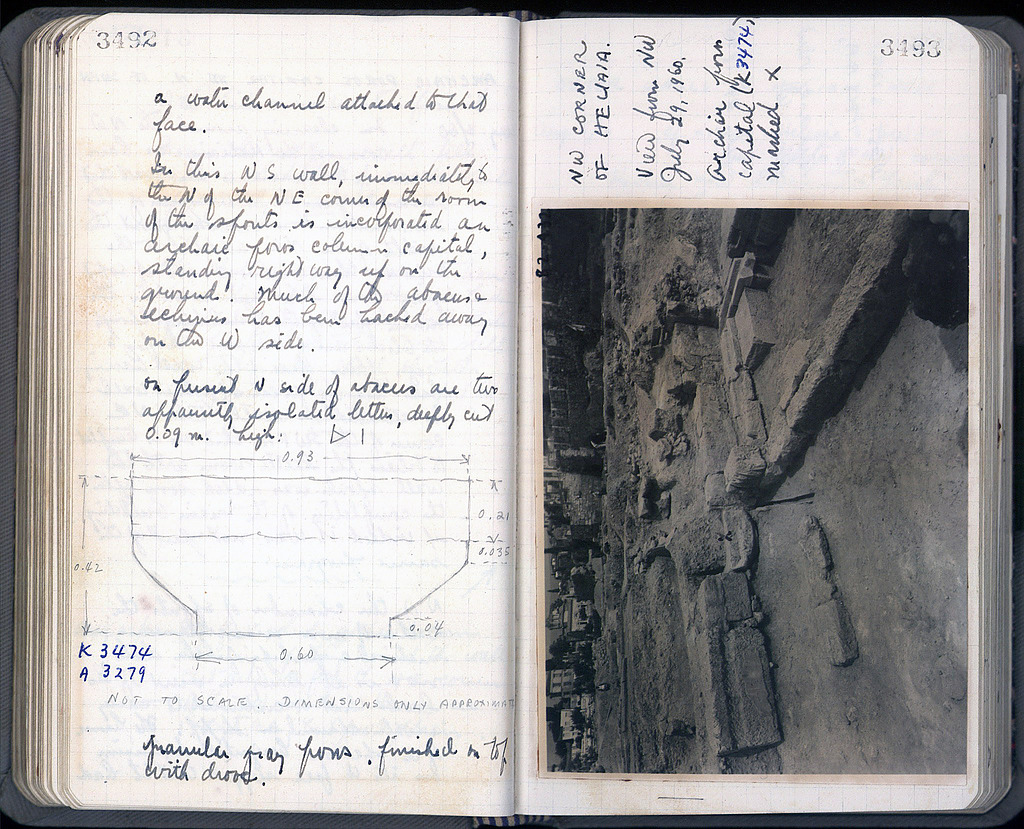 3492
a water channel attached to that
face.
In this NS wall, immediately to
the N of the NE corner of the room
of the spouts is incorporated an
archaic poros column capital,
standing right way up on the
ground. Much of the abacus &
echinus has been hacked away
on the W side.
on present N side of abacus are two
apparently isolated letters, deeply cut
0.09 m. high: ▷ I
0.93
0.21
0.035
0.42
0.04
0.60
K 3474
A 3279
NOT TO SCALE. DIMENSIONS ONLY APPROXIMAT
granular gray poros, finished on top
with drove.
3493
NW CORNER
OF HELIAIA.
View from NW
July 29, 1960.
Archaic poros
capital (K3474)
marked X